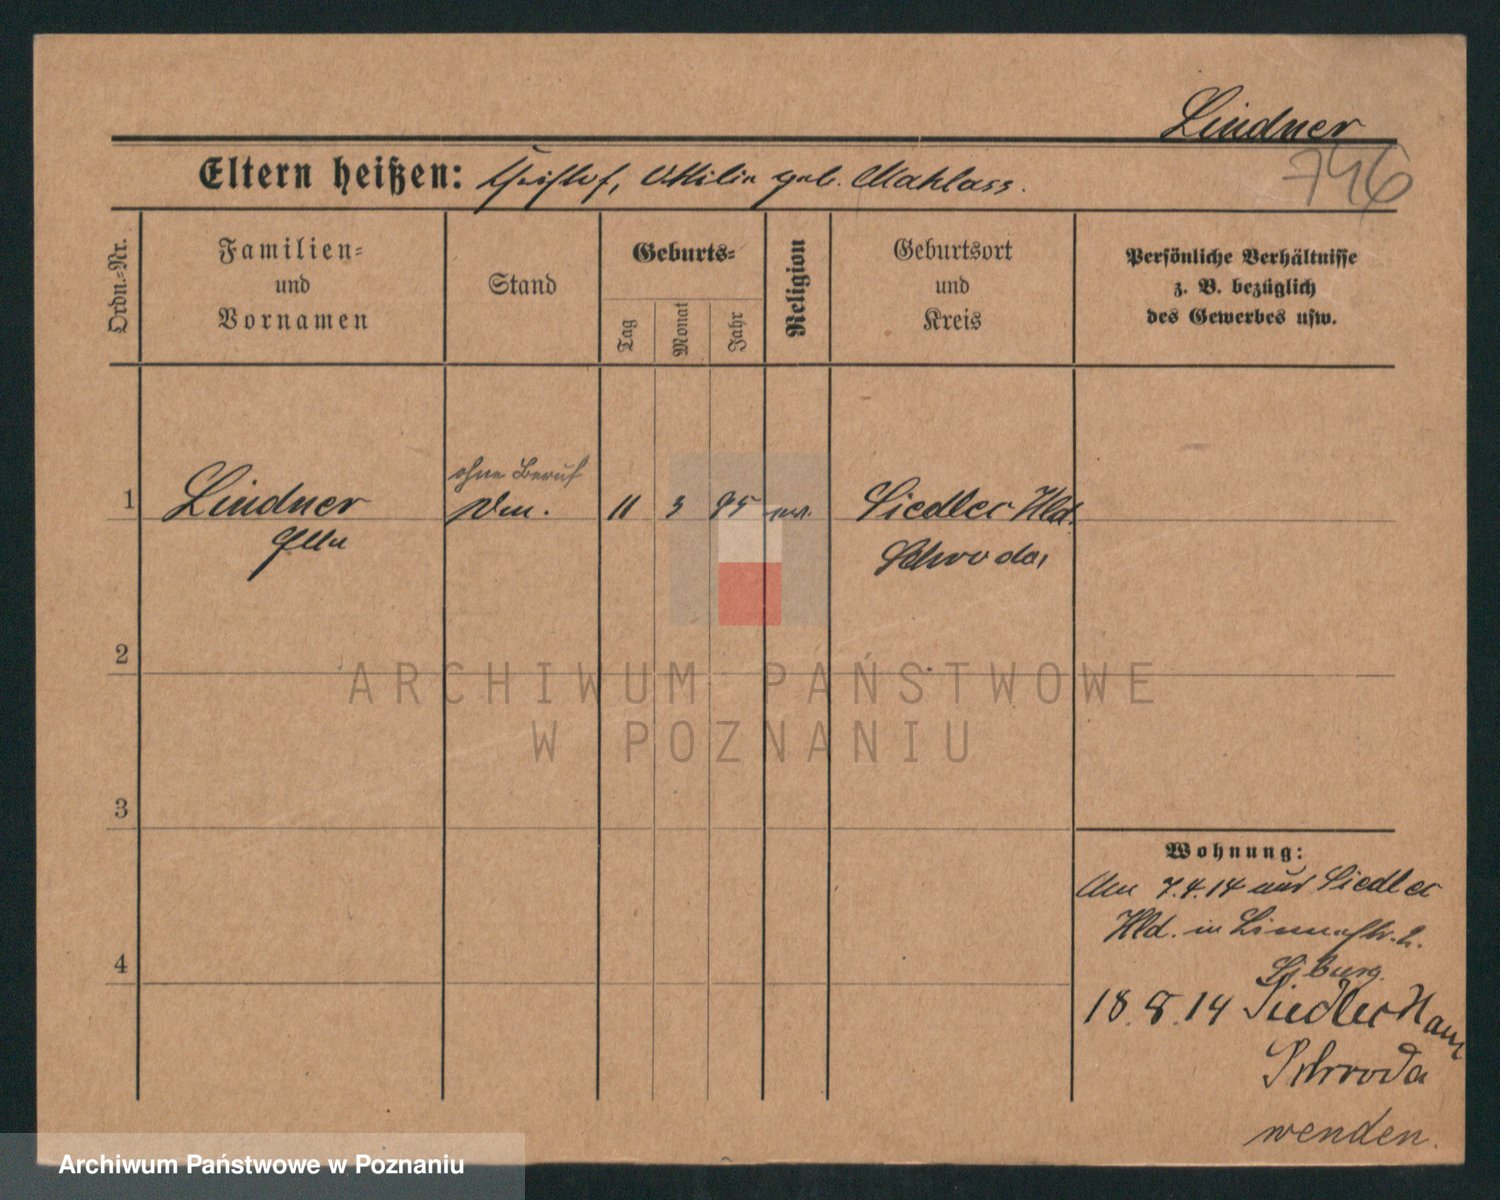 Lindner
746
Eltern heißen: Christof, Ottilie geb. Mahlass.
Ordn.-Nr.
Familien-
und
Vornamen
Stand
Geburts-
Tag
Monat
Jahr
Religion
Geburtsort
und
Kreis
Persönliche Verhältnisse
z. B. bezüglich
des Gewerbes usw.
ohne Beruf
1 Lindner 11 3 95 ev. Siedler Hld.
Schroda,
2
3
4
Wohnung:
7.4.14 aus Siedler
Hld. in
18.8.14 Siedler Haul
Schroda
wenden.
ARCHIWUM PAŃSTWOWE
W POZNANIU
Archiwum Państwowe w Poznaniu